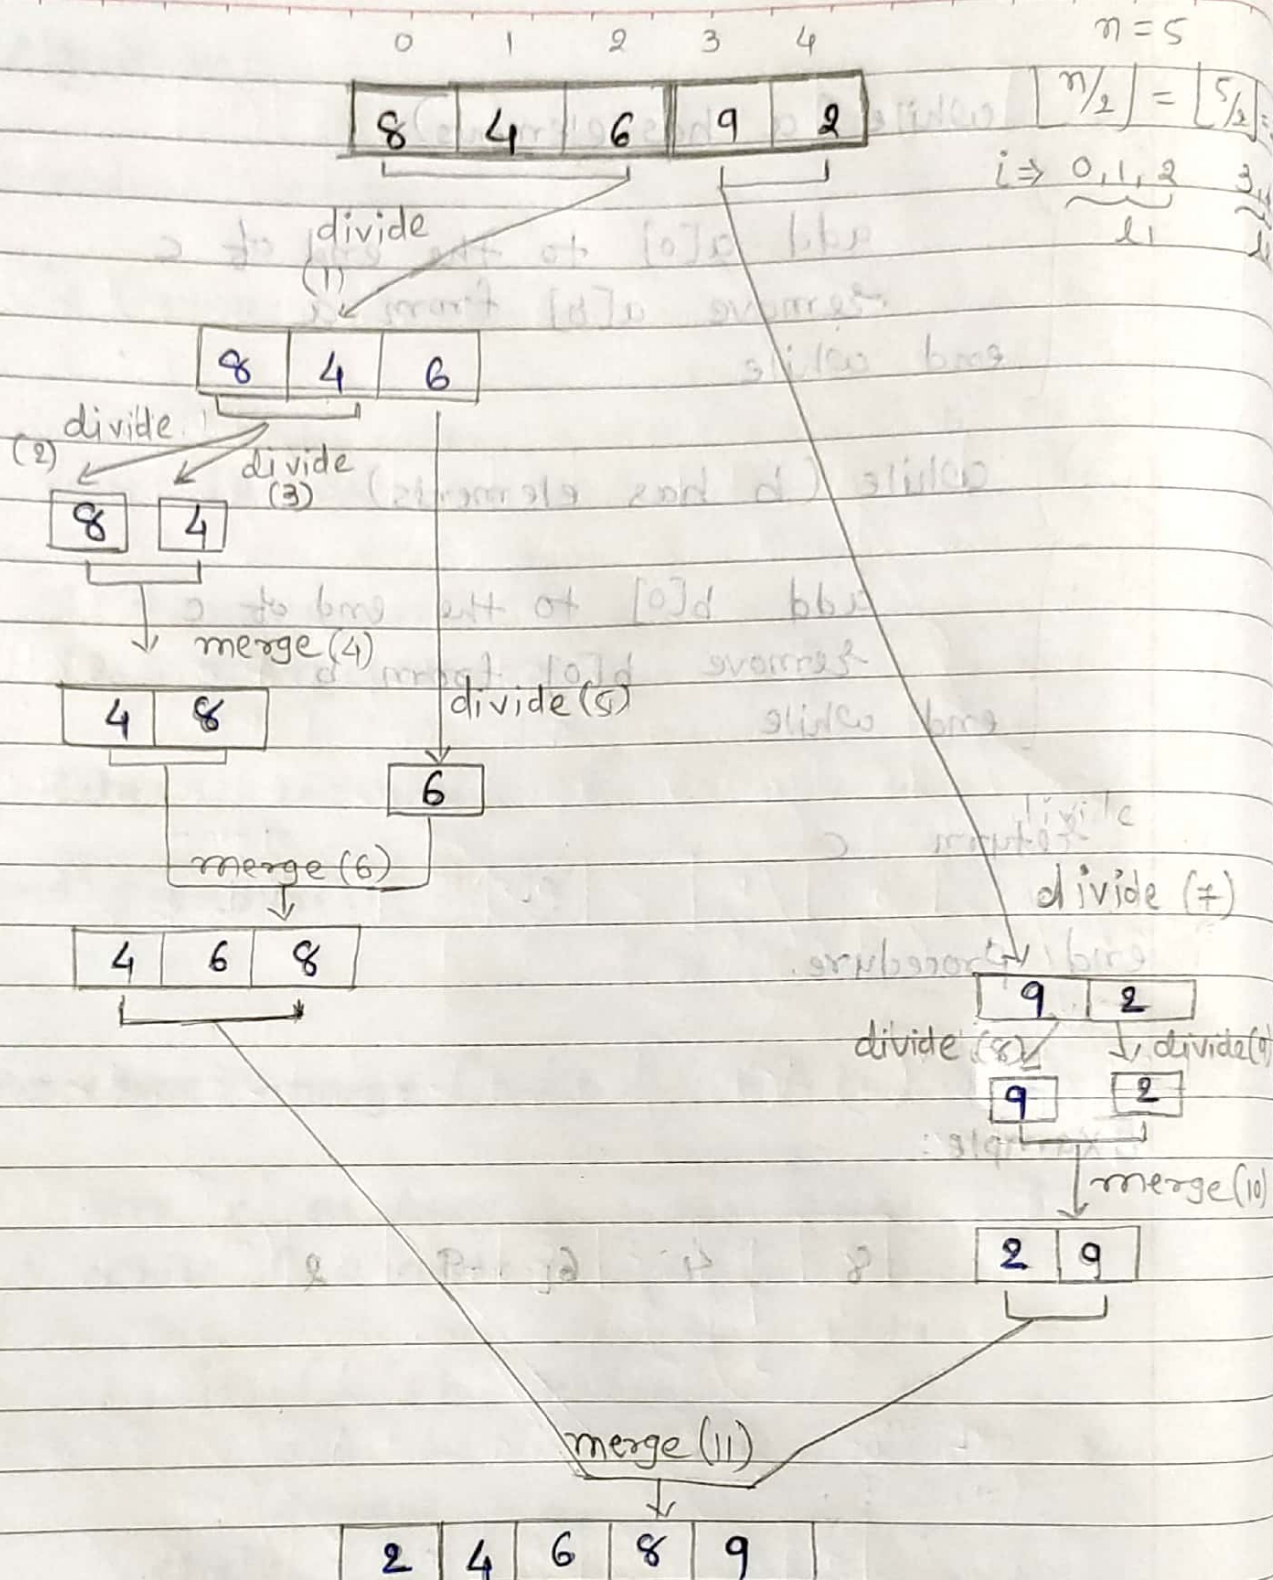 0 1 2 3 4
n = 5
8 4 6 9 2
⌈n/2⌉ = ⌈5/2⌉ =
i ⇒ 0, 1, 2 3,
l1
divide
(1)
8 4 6
divide
(2)
divide
(3)
8 4
merge (4)
4 8
divide (5)
6
merge (6)
divide (7)
4 6 8
9 2
divide (8)
divide (9)
9 2
merge (10)
2 9
merge (11)
2 4 6 8 9